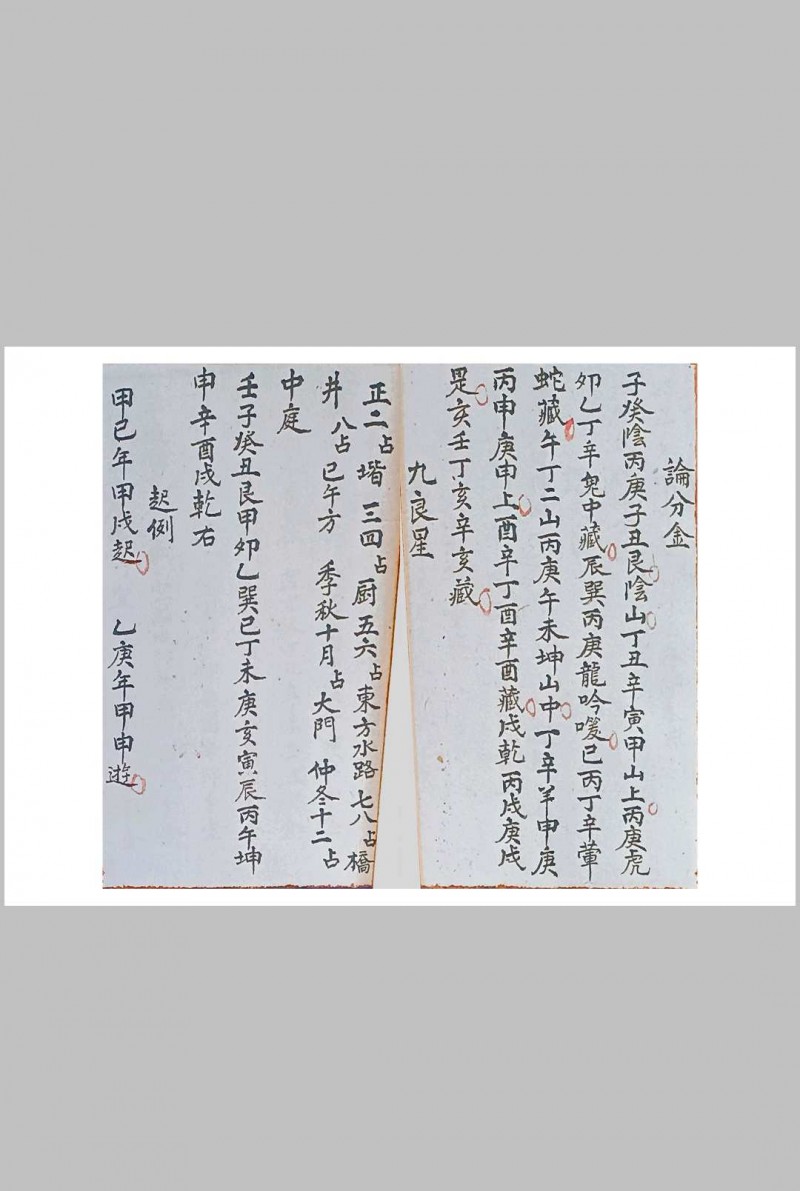 論分金
子癸陰丙庚子丑艮陰山丁丑辛寅甲山上丙庚虎
卯乙丁辛兔中藏辰巽丙庚龍吟嗳巳丙丁辛葷
蛇藏午丁二山丙庚午未坤山中丁辛羊申庚
丙申庚申上酉辛丁酉辛酉藏戌乾丙戌庚戌
是亥壬丁亥辛亥藏
九良星
正二占堦三四占厨五六占東方水路七八占橋
井八占巳午方季秋十月占大門仲冬十二占
中庭
壬子癸丑艮甲卯乙巽巳丁未庚亥寅辰丙午坤
申辛酉戌乾右
起例
甲己年甲戌起 乙庚年甲申遊